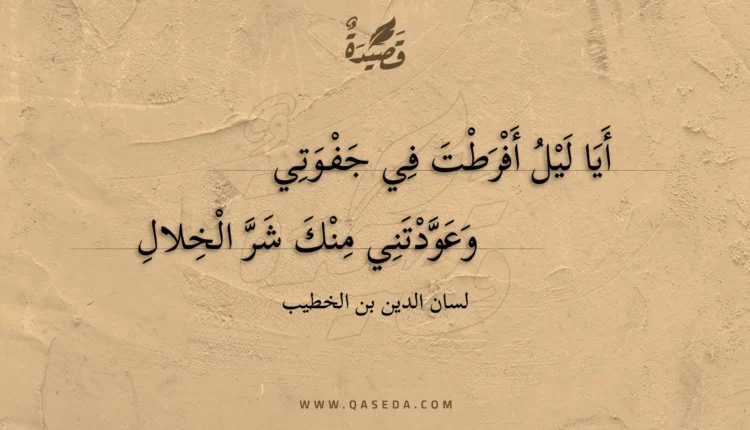 قَصِيدَةٌ
أَيَا لَيْلُ أَفْرَطْتَ فِي جَفْوَتِي
وَعَوَّدْتَنِي مِنْكَ شَرَّ الْخِلالِ
لسان الدين بن الخطيب
WWW.QASEDA.COM